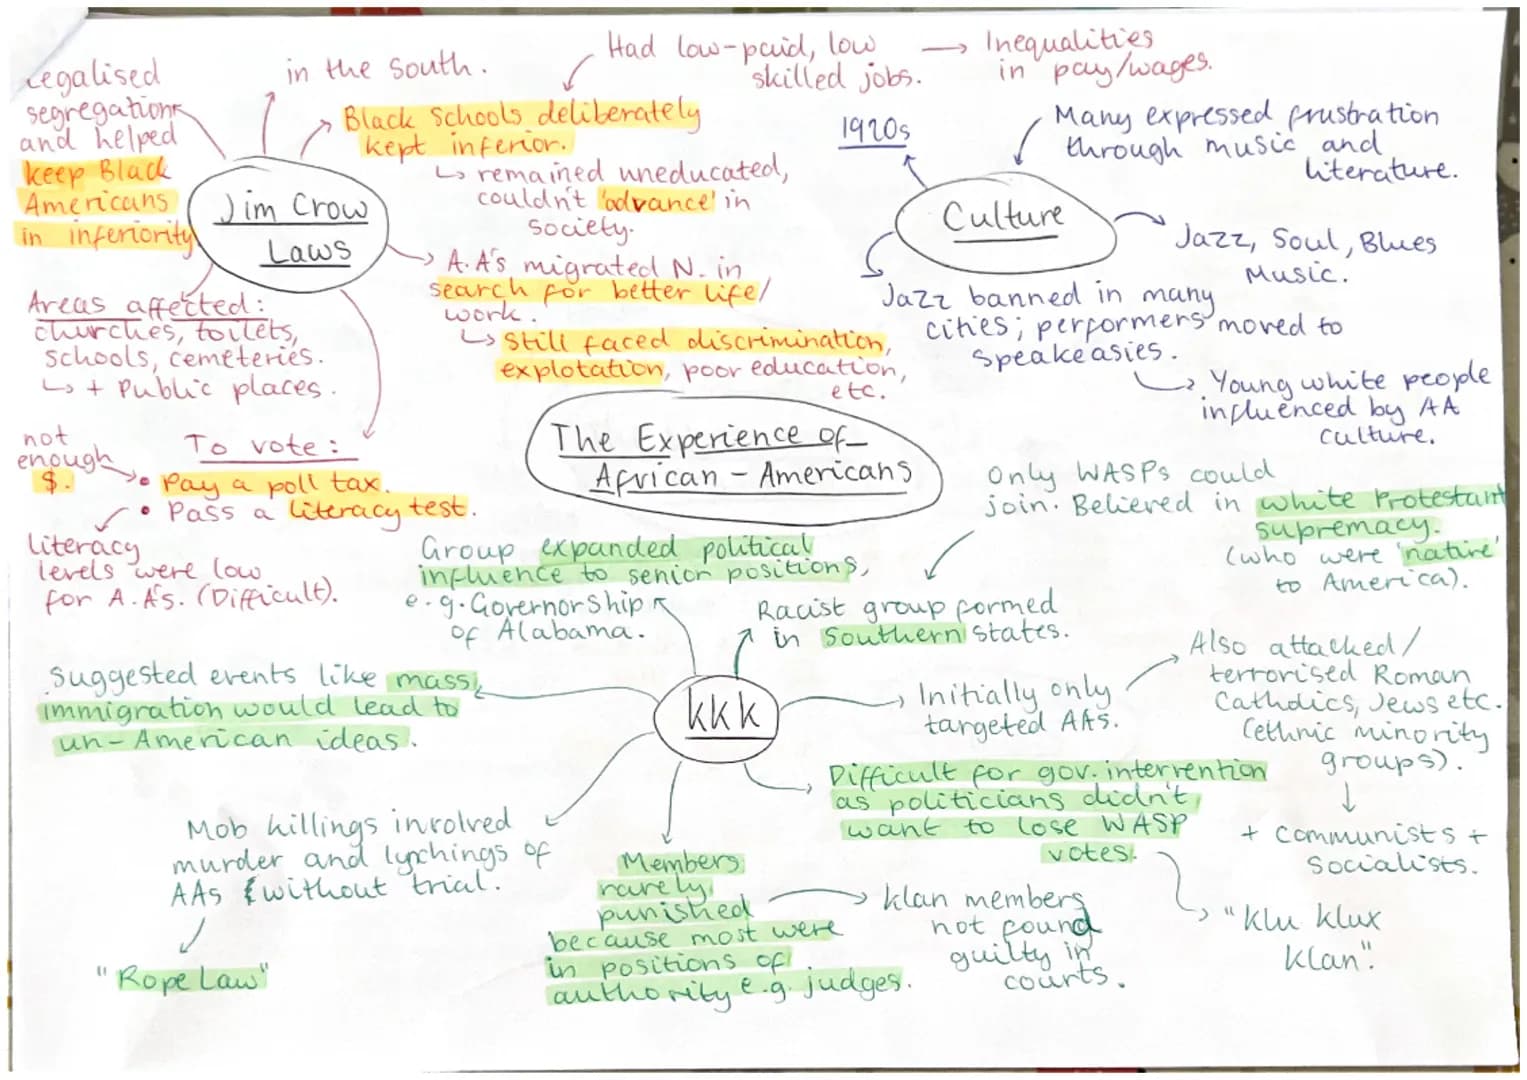 The Experience of
African-Americans
Jim Crow
Laws
Legalised
segregation
and helped
keep Black
Americans
in inferiority
in the South.
Had low-paid, low
skilled jobs.
Inequalities
in pay/wages.
Black Schools deliberately
kept inferior.
remained uneducated,
couldn't 'advance' in
society.
A.A's migrated N. in
search for better life/
work.
Still faced discrimination,
explotation, poor education,
etc.
Areas affected:
churches, toilets,
schools, cemeteries.
+ Public places.
To vote:
• Pay a poll tax.
• Pass a literacy test.
not
enough
$.
literacy
levels were low
for A.A's. (Difficult).
Culture
1920s
Many expressed frustration
through music and
literature.
Jazz, Soul, Blues
Music.
Jazz banned in many
cities; performers moved to
speakeasies.
Young white people
influenced by AA
culture.
KKK
Group expanded political
influence to senior positions,
e.g. Governorship
of Alabama.
Racist group formed
in Southern states.
Only WASPs could
join. Believed in white Protestant
supremacy.
(who were 'native'
to America).
Initially only
targeted AAs.
Also attacked/
terrorised Roman
Catholics, Jews etc.
(ethnic minority
groups).
+ communists +
Socialists.
Difficult for gov. intervention
as politicians didn't
want to lose WASP
votes.
"Klu Klux
Klan".
Members
rarely
punished
because most were
in positions of
authority e.g. judges.
Klan members
not found
guilty in
courts.
Mob killings involved
murder and lynchings of
AAs without trial.
"Rope Law"
Suggested events like mass
immigration would lead to
un-American ideas.